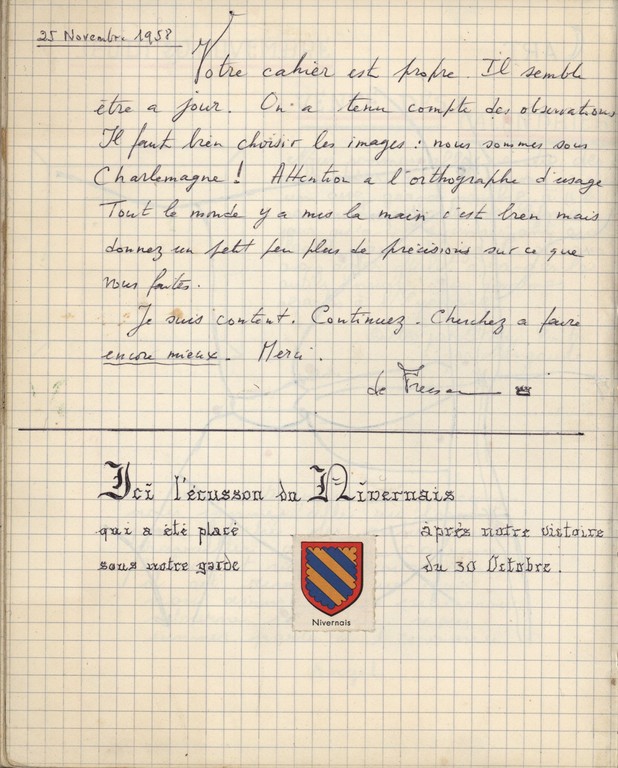 25 Novembre 1958
Votre cahier est propre. Il semble
être a jour. On a tenu compte des observations
Il faut bien choisir les images : nous sommes sous
Charlemagne ! Attention a l'orthographe d'usage
Tout le monde y a mis la main c'est bien mais
donnez un petit peu plus de précisions sur ce que
vous faites.
Je suis content. Continuez. Cherchez a faire
encore mieux. Merci.
de
Ici l'écusson du Nivernais
qui a été placé après notre victoire
sous notre garde du 30 Octobre.
Nivernais